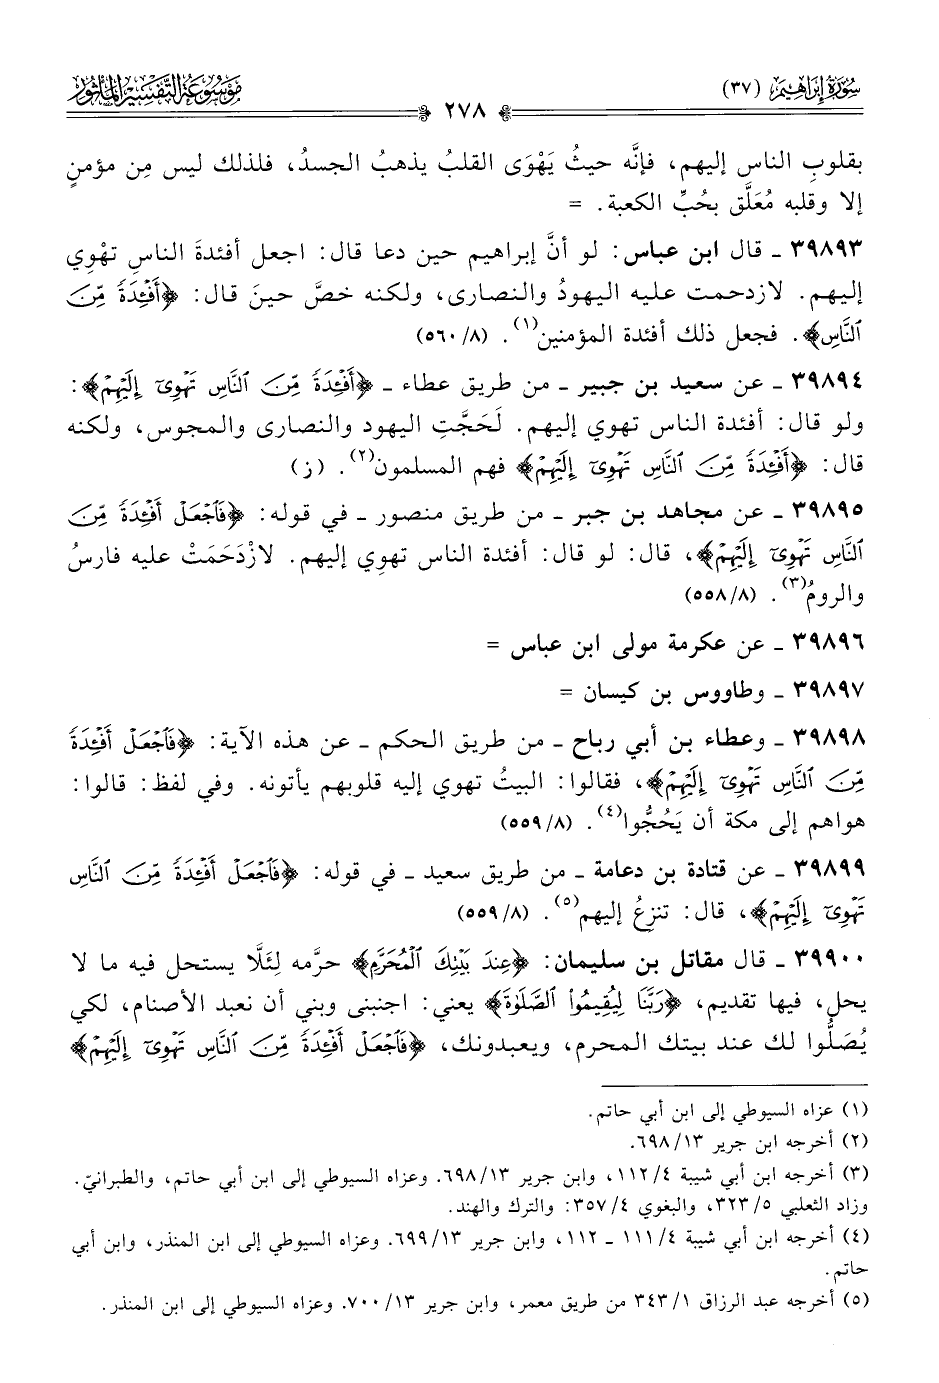 سُورَةُ إِبْرَاهِيمَ (٣٧)
٢٧٨
مَوْسُوعَةُ التَّفْسِيرِ المَأْثُورِ
بقلوبِ الناس إليهم، فإنَّه حيثُ يَهْوَى القلبُ يذهبُ الجسدُ، فلذلك ليس مِن مؤمنٍ
إلا وقلبه مُعَلَّق بحُبِّ الكعبة. =
٣٩٨٩٣ ـ قال ابن عباس: لو أنَّ إبراهيم حين دعا قال: اجعل أفئدةَ الناسِ تهْوِي
إليهم. لازدحمت عليه اليهودُ والنصارى، ولكنه خصَّ حينَ قال: ﴿أَفْـِٔدَةً مِّنَ
ٱلنَّاسِ﴾. فجعل ذلك أفئدة المؤمنين(١). (٨/ ٥٦٠)
٣٩٨٩٤ ـ عن سعيد بن جبير ـ من طريق عطاء ـ ﴿أَفْـِٔدَةً مِّنَ ٱلنَّاسِ تَهْوِىٓ إِلَيْهِمْ﴾:
ولو قال: أفئدة الناس تهوي إليهم. لَحَجَّتِ اليهود والنصارى والمجوس، ولكنه
قال: ﴿أَفْـِٔدَةً مِّنَ ٱلنَّاسِ تَهْوِىٓ إِلَيْهِمْ﴾ فهم المسلمون(٢). (ز)
٣٩٨٩٥ ـ عن مجاهد بن جبر ـ من طريق منصور ـ في قوله: ﴿فَٱجْعَلْ أَفْـِٔدَةً مِّنَ
ٱلنَّاسِ تَهْوِىٓ إِلَيْهِمْ﴾، قال: لو قال: أفئدة الناس تهوِي إليهم. لازْدَحَمَتْ عليه فارسُ
والرومُ(٣). (٨/ ٥٥٨)
٣٩٨٩٦ ـ عن عكرمة مولى ابن عباس =
٣٩٨٩٧ ـ وطاووس بن كيسان =
٣٩٨٩٨ ـ وعطاء بن أبي رباح ـ من طريق الحكم ـ عن هذه الآية: ﴿فَٱجْعَلْ أَفْـِٔدَةً
مِّنَ ٱلنَّاسِ تَهْوِىٓ إِلَيْهِمْ﴾، فقالوا: البيتُ تهوي إليه قلوبهم يأتونه. وفي لفظ: قالوا:
هواهم إلى مكة أن يَحُجُّوا(٤). (٨/ ٥٥٩)
٣٩٨٩٩ ـ عن قتادة بن دعامة ـ من طريق سعيد ـ في قوله: ﴿فَٱجْعَلْ أَفْـِٔدَةً مِّنَ ٱلنَّاسِ
تَهْوِىٓ إِلَيْهِمْ﴾، قال: تنزعُ إليهم(٥). (٨/ ٥٥٩)
٣٩٩٠٠ ـ قال مقاتل بن سليمان: ﴿عِندَ بَيْتِكَ ٱلْمُحَرَّمِ﴾ حرَّمه لِئَلَّا يستحل فيه ما لا
يحل، فيها تقديم، ﴿رَبَّنَا لِيُقِيمُوا۟ ٱلصَّلَوٰةَ﴾ يعني: اجنبنى وبني أن نعبد الأصنام، لكي
يُصَلُّوا لك عند بيتك المحرم، ويعبدونك، ﴿فَٱجْعَلْ أَفْـِٔدَةً مِّنَ ٱلنَّاسِ تَهْوِىٓ إِلَيْهِمْ﴾
(١) عزاه السيوطي إلى ابن أبي حاتم.
(٢) أخرجه ابن جرير ١٣/ ٦٩٨.
(٣) أخرجه ابن أبي شيبة ٤/ ١١٢، وابن جرير ١٣/ ٦٩٨. وعزاه السيوطي إلى ابن أبي حاتم، والطبرانيّ.
وزاد الثعلبي ٥/ ٣٢٣، والبغوي ٤/ ٣٥٧: والترك والهند.
(٤) أخرجه ابن أبي شيبة ٤/ ١١١ ـ ١١٢، وابن جرير ١٣/ ٦٩٩. وعزاه السيوطي إلى ابن المنذر، وابن أبي
حاتم.
(٥) أخرجه عبد الرزاق ١/ ٣٤٣ من طريق معمر، وابن جرير ١٣/ ٧٠٠. وعزاه السيوطي إلى ابن المنذر.